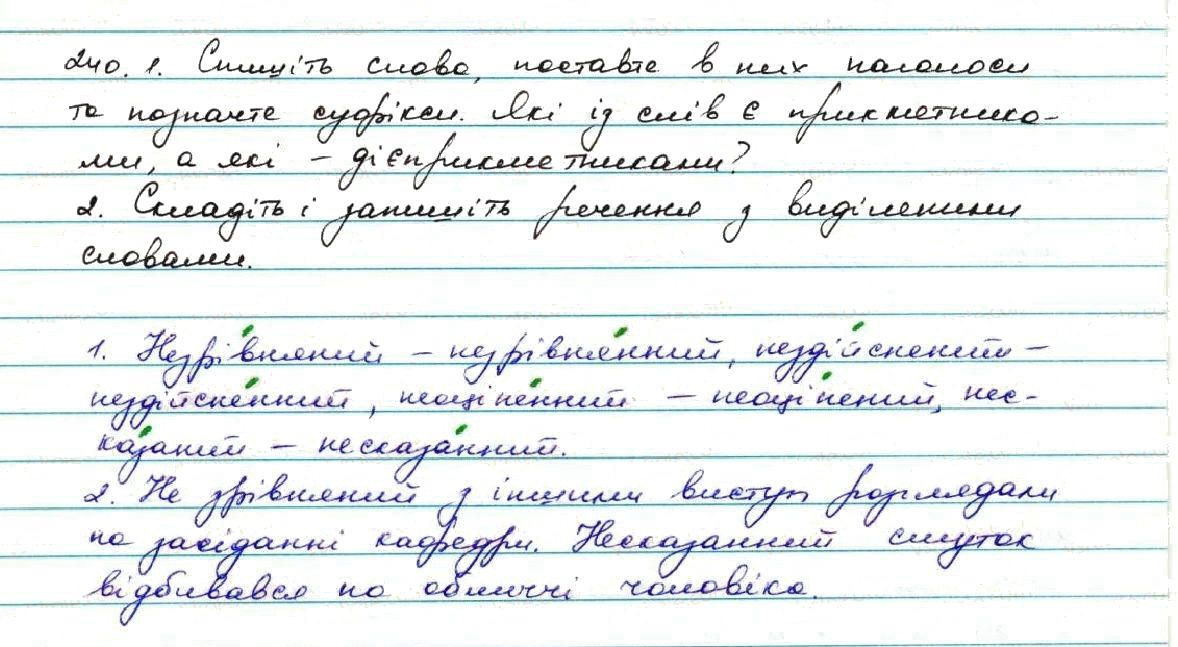 240. 1. Спишіть слова, поставте в них наголоси
та позначте суфікси. Які із слів є прикметника-
ми, а які – дієприкметниками?
2. Складіть і запишіть речення з виділеними
словами.
1. Незрі́вняний – незрівня́нний, незді́йснений –
нездійсне́нний, неоціне́нний – неоці́нений, нес-
ка́заний – несказа́нний.
2. Не зрівняний з іншими виступ розглядали
на засіданні кафедри. Несказанний смуток
відбивався на обличчі чоловіка.